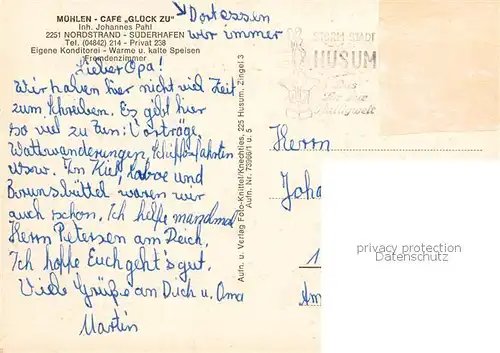 MÜHLEN - CAFÉ „GLÜCK ZU"
Inh. Johannes Pahl
2251 NORDSTRAND - SÜDERHAFEN
Tel. (04842) 214 - Privat 238
Eigene Konditorei - Warme u. kalte Speisen
Fremdenzimmer
Dort essen
wir immer
Lieber Opa!
Wir haben hier nicht viel Zeit
zum Schreiben. Es gibt hier
so viel zu tun: Vorträge,
Wattwanderungen, Schiffsfahrten
usw. Im Kiel, Laboe und
Brunsbüttel waren wir
auch schon. Ich helfe manchmal
Herrn Petersen am Deich.
Ich hoffe Euch geht's gut.
Viele Grüße an Dich u. Oma
Martin
Aufn. u. Verlag Foto-Knittel/Knechtles, 225 Husum, Zingel 3
Aufn. Nr. 73966/1 u. 5
STORM STADT
HUSUM
Das
Tor zur
Halligwelt
Herrn
Joha
1
Am
privacy protection
oldthing.de